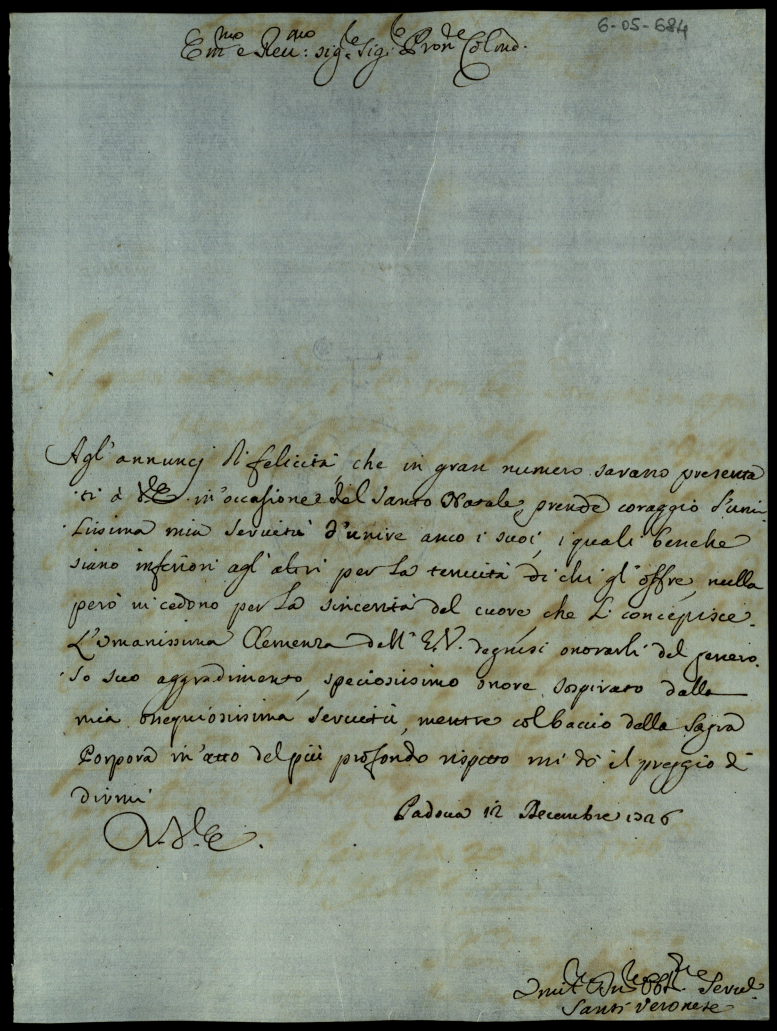 6-05-684
Em.mo e Reu.mo: Sig.re Sig.re Pron.e Colend.
Agl'annuncj di felicità, che in gran numero saranno presenta
ti à V.E. in occasione del Santo Natale, prende coraggio l'umi-
lissima mia servitù d'unire anco i suoi, i quali benche
siano inferiori agl'altri per la tenuità di chi gl'offre, nulla
però vi cedono per la sincerità del cuore, che li concepisce.
L'Umanissima Clemenza dell'E.V. degnisi onorarli del genero-
so suo aggradimento, speciosissimo onore sospirato dalla
mia ossequiosissima servitù, mentre col baccio della Sagra
Porpora in atto del più profondo rispetto mi dò il preggio di
dirmi
V.E.
Padova 12 Decembre 1726
Umil.e Obl.e Servid.
Santi Veronese